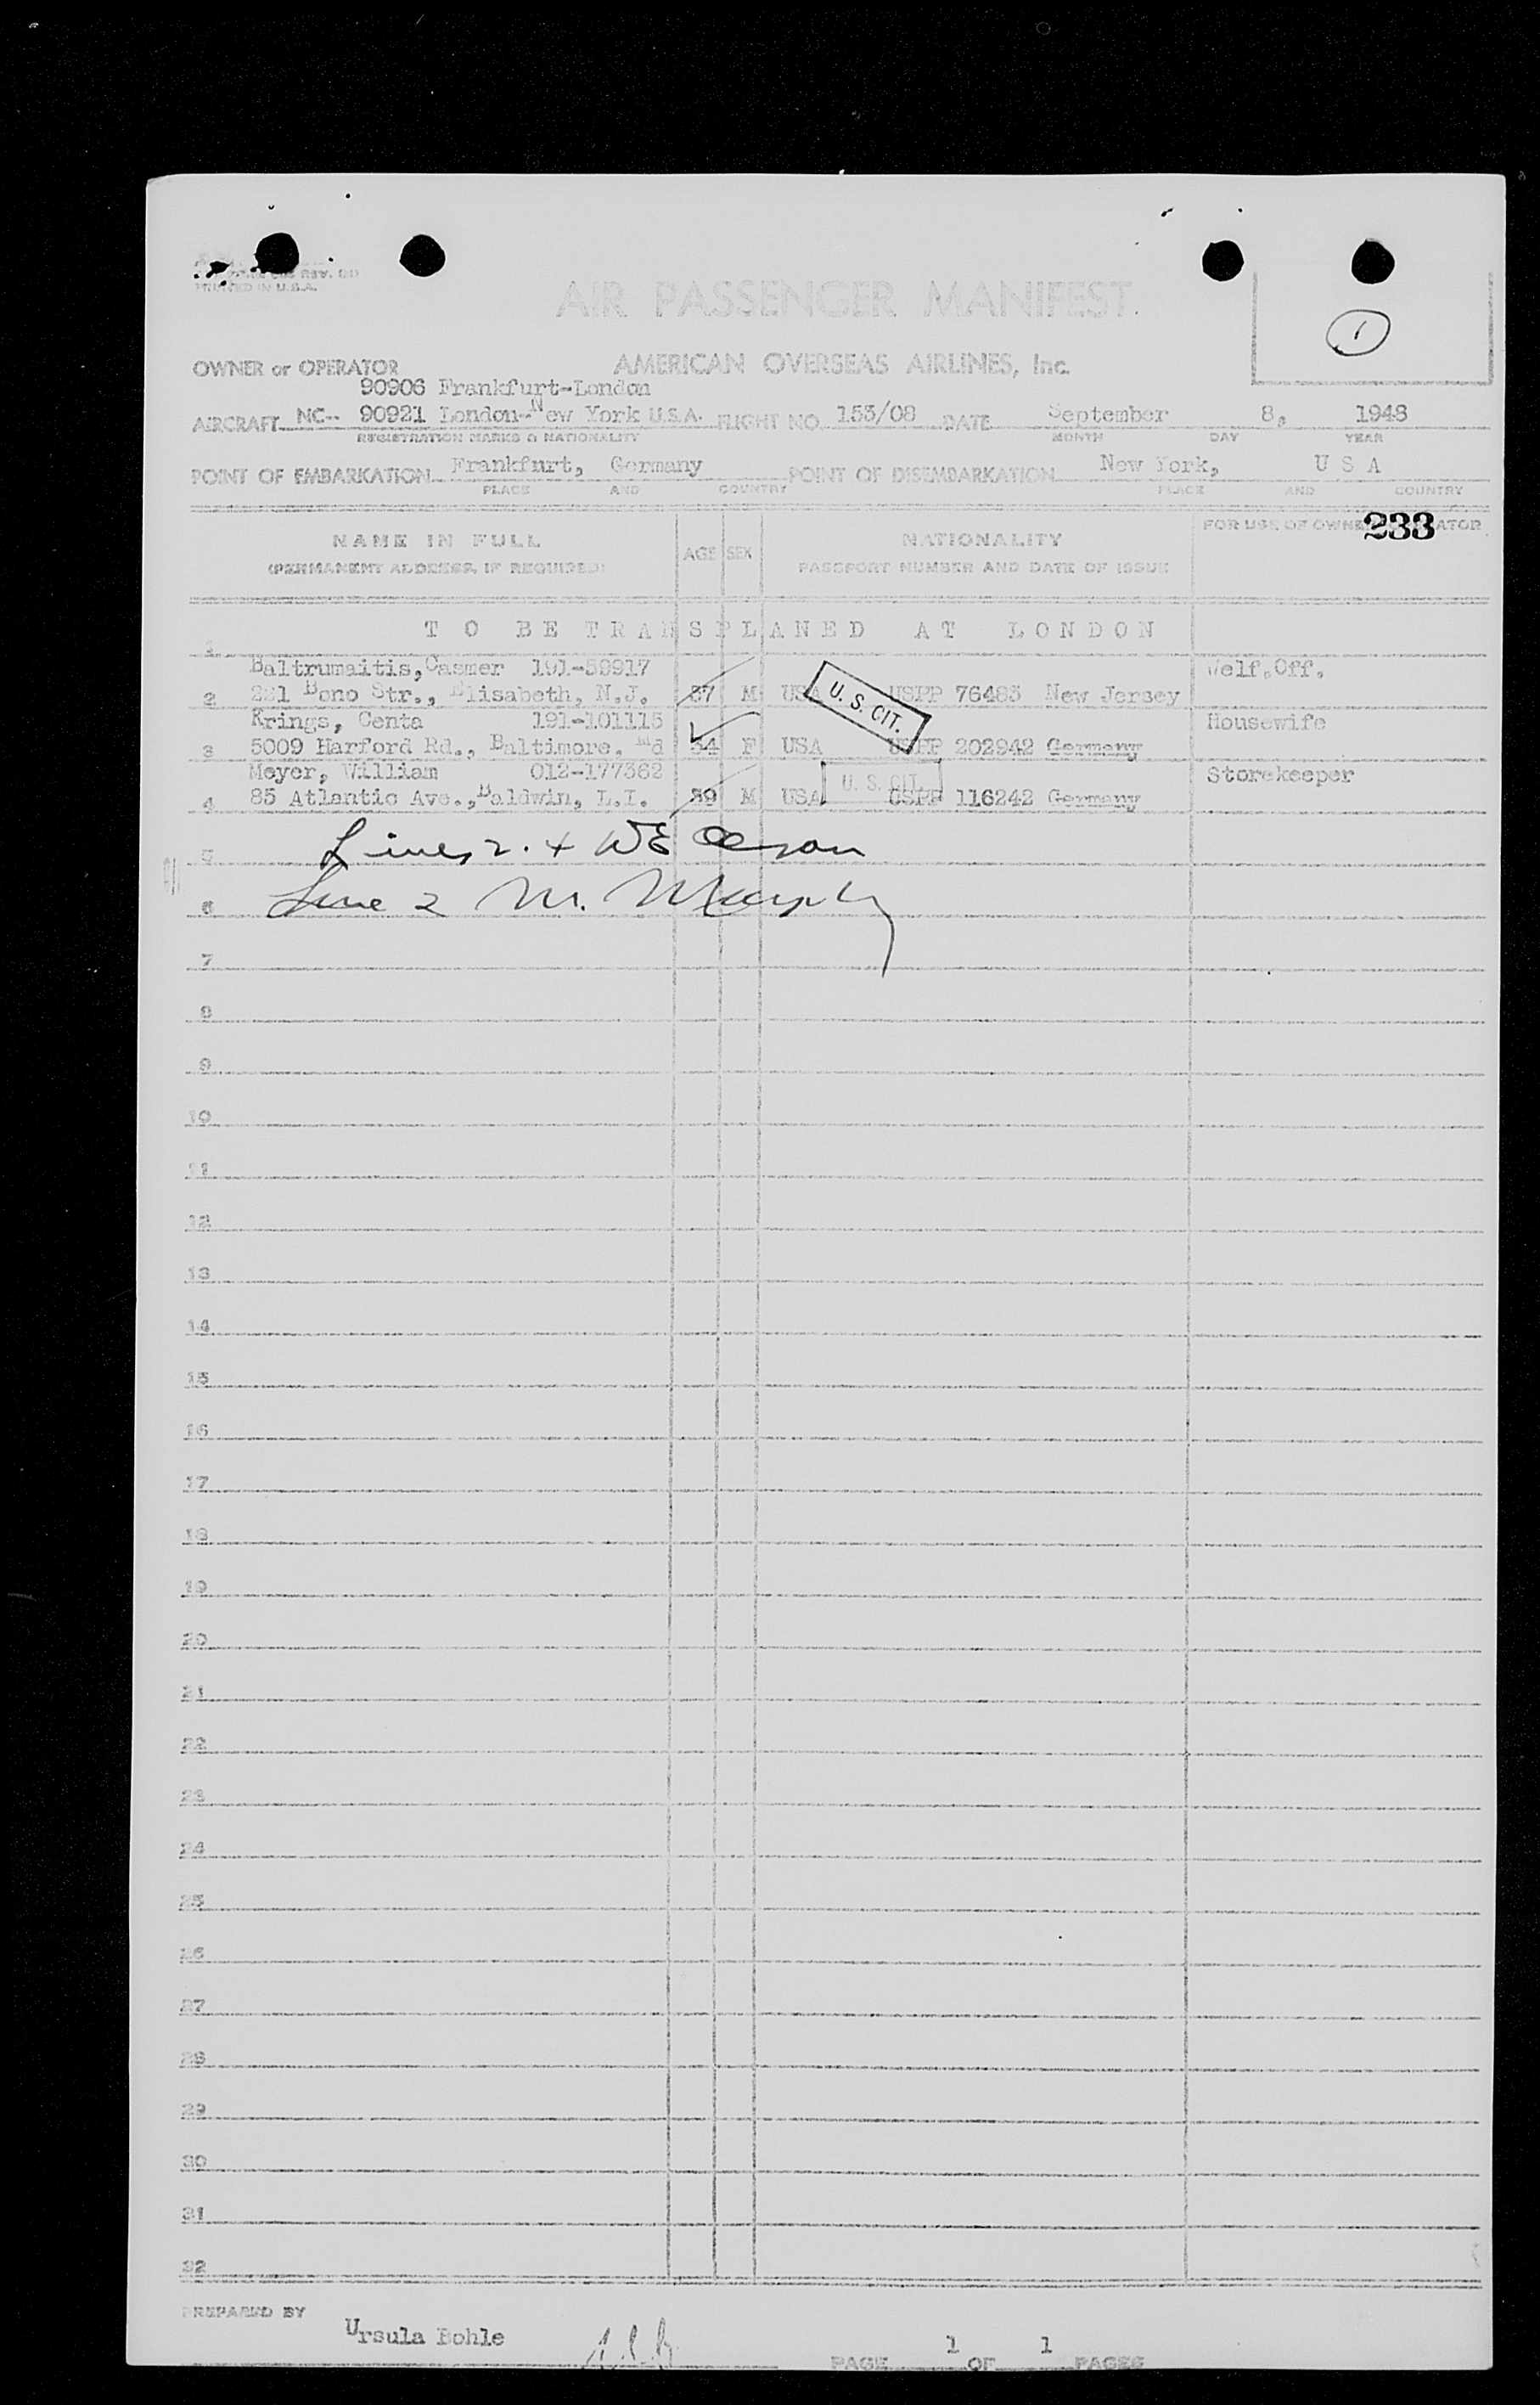 REV.
PRINTED IN U.S.A.
AIR PASSENGER MANIFEST
1
OWNER or OPERATOR AMERICAN OVERSEAS AIRLINES, Inc.
90906 Frankfurt-London
AIRCRAFT NC-- 90921 London-New York U.S.A. FLIGHT NO. 153/08 DATE September 8, 1948
REGISTRATION MARKS & NATIONALITY MONTH DAY YEAR
POINT OF EMBARKATION Frankfurt, Germany POINT OF DISEMBARKATION New York, U S A
PLACE AND COUNTRY PLACE AND COUNTRY
NAME IN FULL
(PERMANENT ADDRESS, IF REQUIRED)
AGE SEX
NATIONALITY
PASSPORT NUMBER AND DATE OF ISSUE
FOR USE OF OWNER OPERATOR
233
1 T O B E T R A N S P L A N E D A T L O N D O N
Baltrumaitis, Casmer 191-59917 Welf.Off.
2 221 Bono Str., Elisabeth, N.J. 37 M USA USPP 76483 New Jersey
U. S. CIT.
Krings, Centa 191-101115 Housewife
3 5009 Harford Rd., Baltimore. Md 34 F USA USPP 202942 Germany
Meyer, William 012-177362 Storekeeper
4 85 Atlantic Ave., Baldwin, L.I. 39 M USA USPP 116242 Germany
U. S. CIT.
5 Lines 2. + WE
6 Line 2 M. Murphy
7
8
9
10
11
12
13
14
15
16
17
18
19
20
21
22
23
24
25
26
27
28
29
30
31
32
PREPARED BY
Ursula Bohle
PAGE 1 OF 1 PAGES